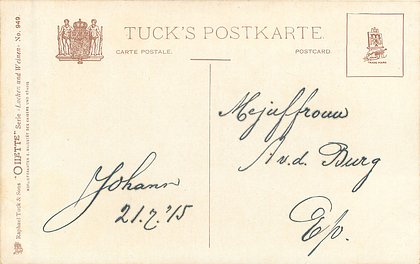 TUCK'S POSTKARTE.
CARTE POSTALE.
POSTCARD.
TRADE MARK
Raphael Tuck & Sons "OILETTE" Serie „Lachen und Weinen“ No. 949.
Mejuffrouw
A.v.d. Burg
Ep.
Johann
21.7.'15